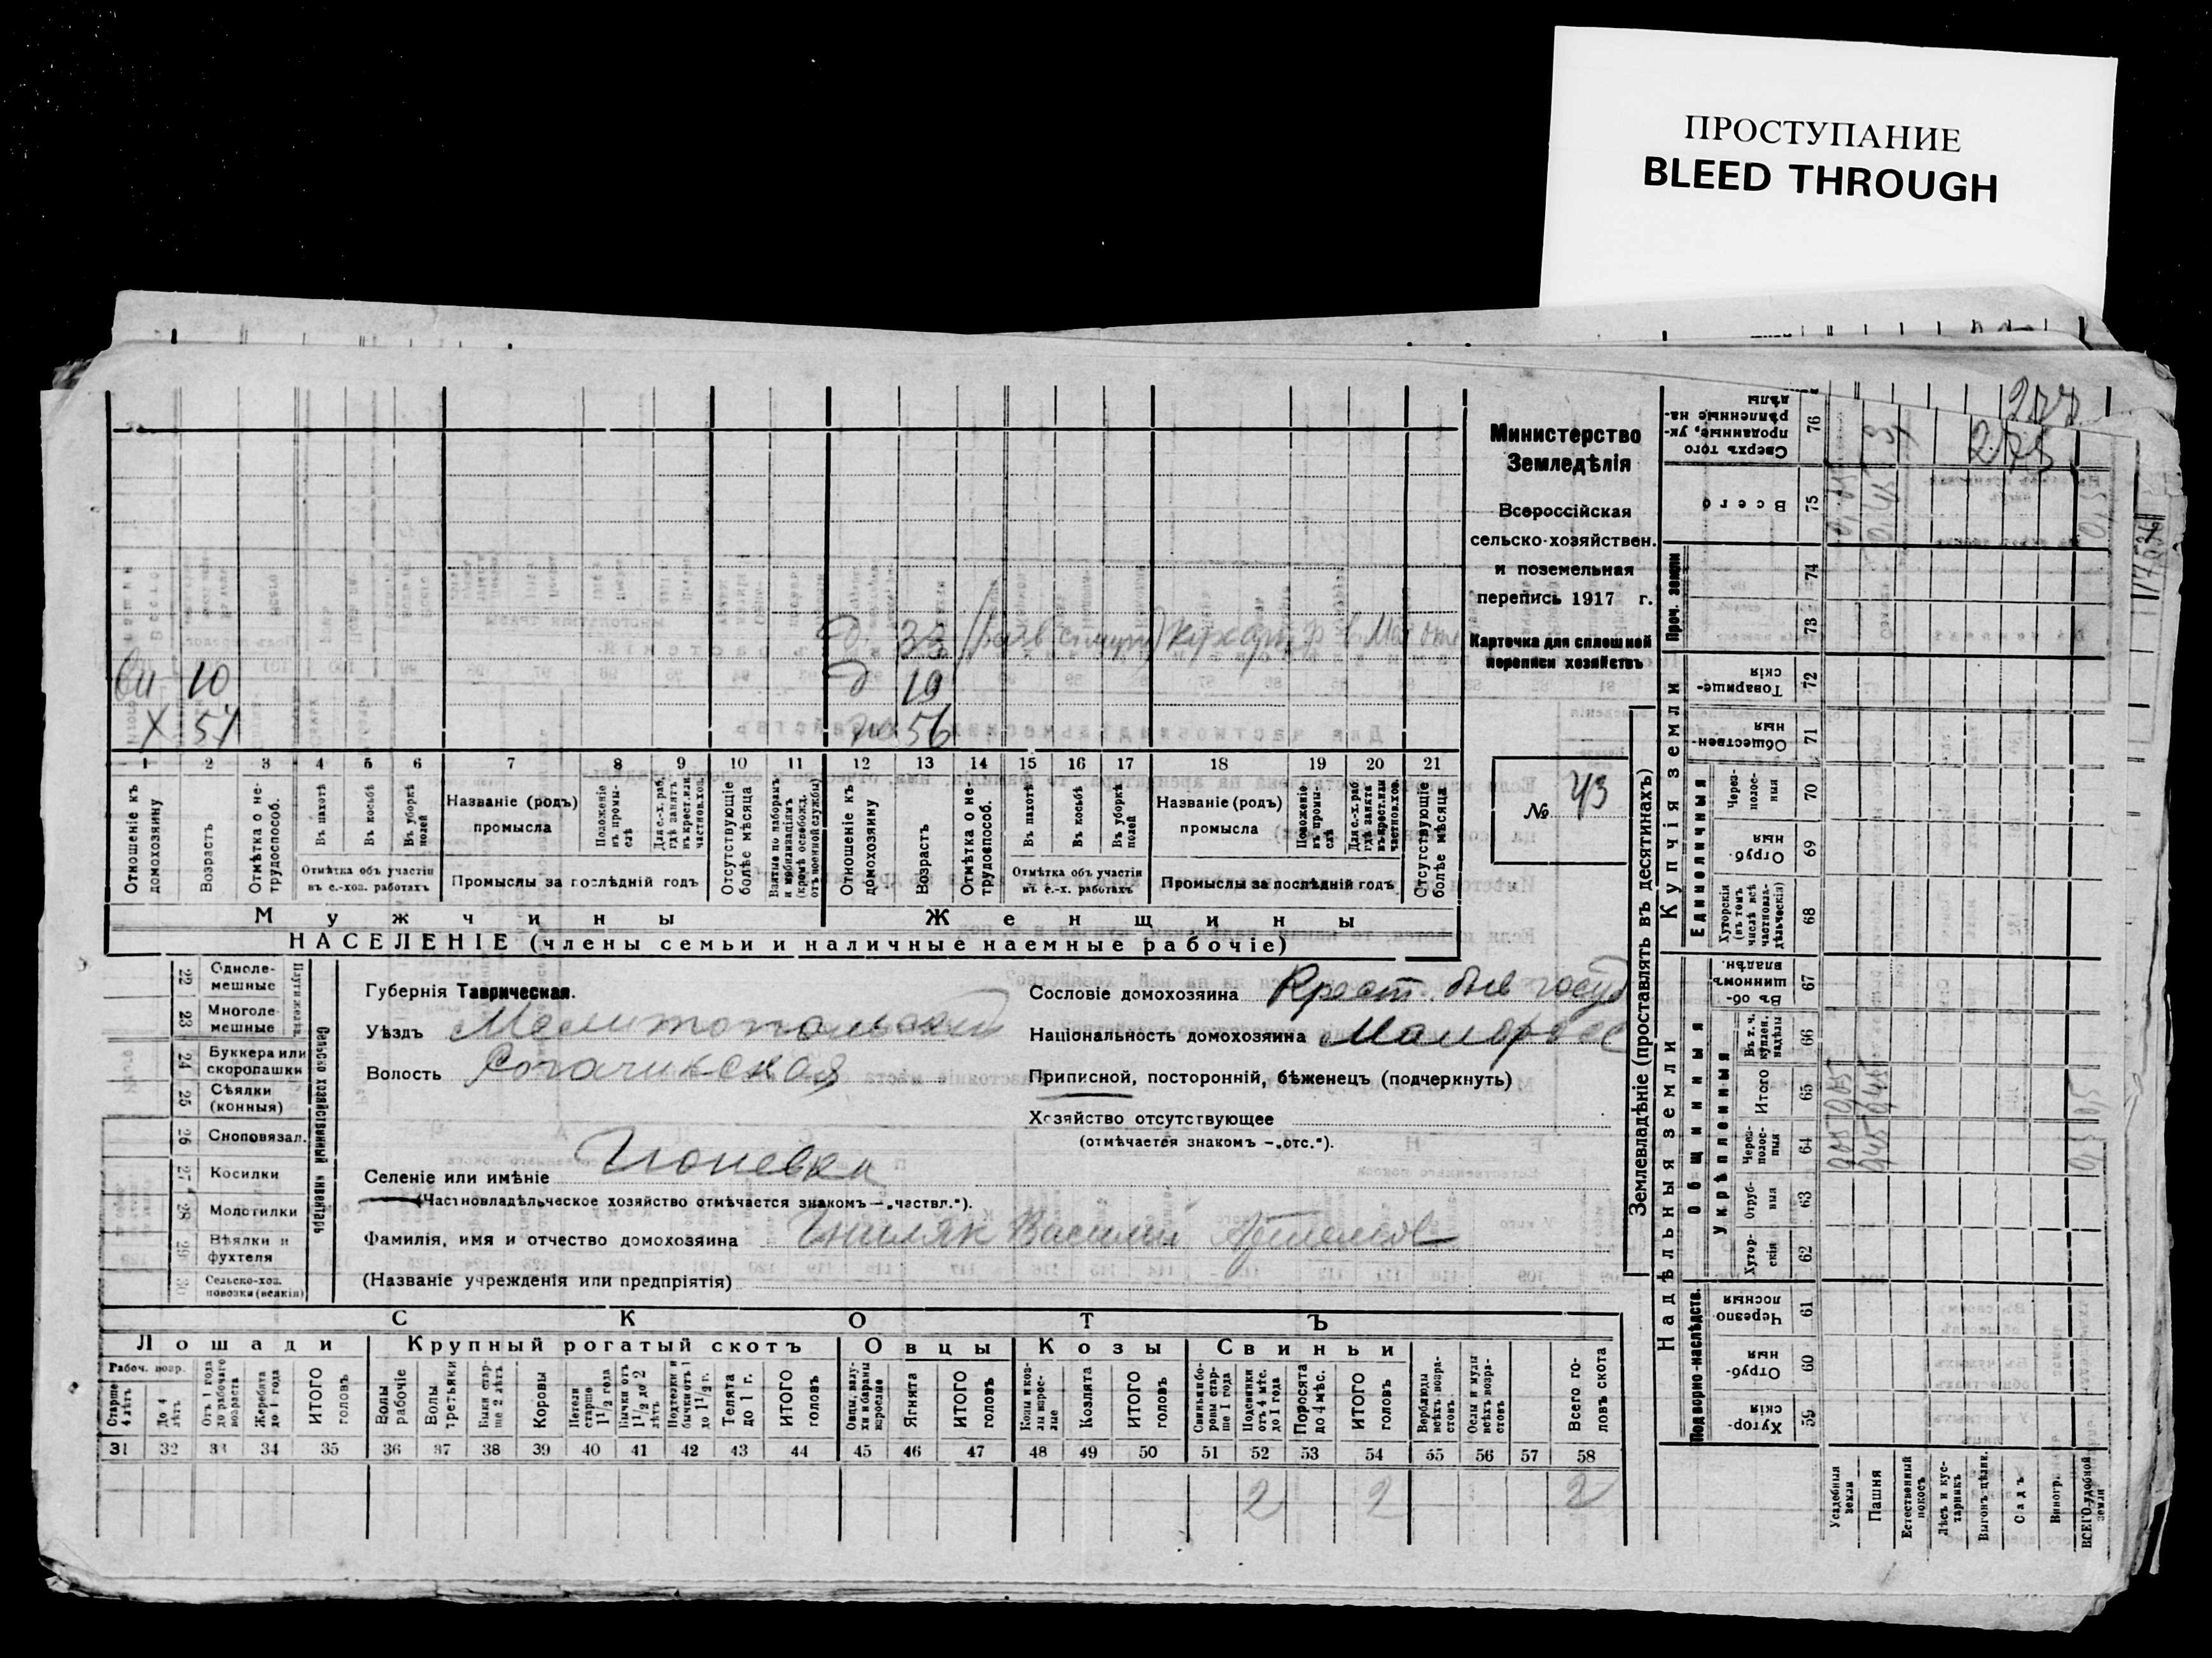 ПРОСТУПАНИЕ
BLEED THROUGH
277
275
Министерство
Земледѣлія
Всероссійская
сельско-хозяйствен.
и поземельная
перепись 1917 г.
Карточка для сплошной
переписи хозяйствъ
№ 43
д 33
вн 10 д 19
х 57 же 56
1 2 3 4 5 6 7 8 9 10 11 12 13 14 15 16 17 18 19 20 21
Отношеніе къ домохозяину
Возрастъ
Отмѣтка о нетрудоспособ.
Въ пахотѣ
Въ косьбѣ
Въ уборкѣ полей
Отмѣтка объ участіи
въ с.-хоз. работахъ
Названіе (родъ)
промысла
Положеніе въ промыслѣ
Для с.-х. раб. гдѣ занятъ въ крест. или частнов. хоз.
Промыслы за послѣдній годъ
Отсутствующіе болѣе мѣсяца
Взятые по наборамъ и мобилизаціямъ (кромѣ освобожд. отъ военной службы)
Отношеніе къ домохозяину
Возрастъ
Отмѣтка о нетрудоспособ.
Въ пахотѣ
Въ косьбѣ
Въ уборкѣ полей
Отмѣтка объ участіи
въ с.-х. работахъ
Названіе (родъ)
промысла
Положеніе въ промыслѣ
Для с.-х. раб. гдѣ занята въ крест. или частнов. хоз.
Промыслы за послѣдній годъ
Отсутствующіе болѣе мѣсяца
Мужчины Женщины
НАСЕЛЕНІЕ (члены семьи и наличные наемные рабочіе)
Сельско хозяйственный инвентарь
22 Однолемешные
23 Многолемешные
24 Буккера или скоропашки
25 Сѣялки (конныя)
26 Сноповязал.
27 Косилки
28 Молотилки
29 Вѣялки и фухтеля
30 Сельско-хоз. повозки (всякія)
Губернія Таврическая.
Уѣздъ Мелитопольский
Волость Рогачикская
Селеніе или имѣніе
(Частновладѣльческое хозяйство отмѣчается знакомъ — „частвл.").
Фамилія, имя и отчество домохозяина Гниляк Василий
(Названіе учрежденія или предпріятія)
Сословіе домохозяина Крест. быв госуд
Національность домохозяина Малорос
Приписной, посторонній, бѣженецъ (подчеркнуть)
Хозяйство отсутствующее
(отмѣчается знакомъ — „отс.").
СКОТЪ
Лошади Крупный рогатый скотъ Овцы Козы Свиньи
Рабоч. возр.
Старше 4 лѣтъ
До 4 лѣтъ
Отъ 1 года до рабочаго возраста
Жеребята до 1 года
ИТОГО головъ
Волы рабочіе
Волы третьяки
Быки старше 2 лѣтъ
Коровы
Нетели старше 1 1/2 года
Бычки отъ 1 1/2 до 2 лѣтъ
Подтелки и бычки отъ 1 до 1 1/2 г.
Телята до 1 г.
ИТОГО головъ
Овцы, валухи и бараны взрослые
Ягнята
ИТОГО головъ
Козы и козлы взрослые
Козлята
ИТОГО головъ
Свиньи и боровы старше 1 года
Подсвинки отъ 4 мѣс. до 1 года
Поросята до 4 мѣс.
ИТОГО головъ
Верблюды всѣхъ возрастовъ
Ослы и мулы всѣхъ возрастовъ
Всего головъ скота
31 32 33 34 35 36 37 38 39 40 41 42 43 44 45 46 47 48 49 50 51 52 53 54 55 56 57 58
2 2 2
Землевладѣніе (проставлять въ десятинахъ)
Надѣльныя земли
Подворно-наслѣдств.
59 Хуторскія
60 Отрубныя
61 Черезполосныя
Общинныя
Укрѣпленныя
62 Хуторскія
63 Отрубныя
64 Черезполосныя
65 Итого
66 Въ т. ч. куплен. надѣлы
67 Въ общинномъ владѣн.
Купчія земли
Единоличныя
68 Хуторскія (въ томъ числѣ всѣ частновладѣльческія)
69 Отрубныя
70 Черезполосныя
71 Общественныя
72 Товарищескія
Проч. земли
73
74
75 Всего
76 Сверхъ того проданные, укрѣпленные надѣлы
Усадебныя земли
Пашня
Естественный покосъ
Лѣсъ и кустарникъ
Выгонъ цѣлин.
Садъ
Виногр.
ВСЕГО удобной земли